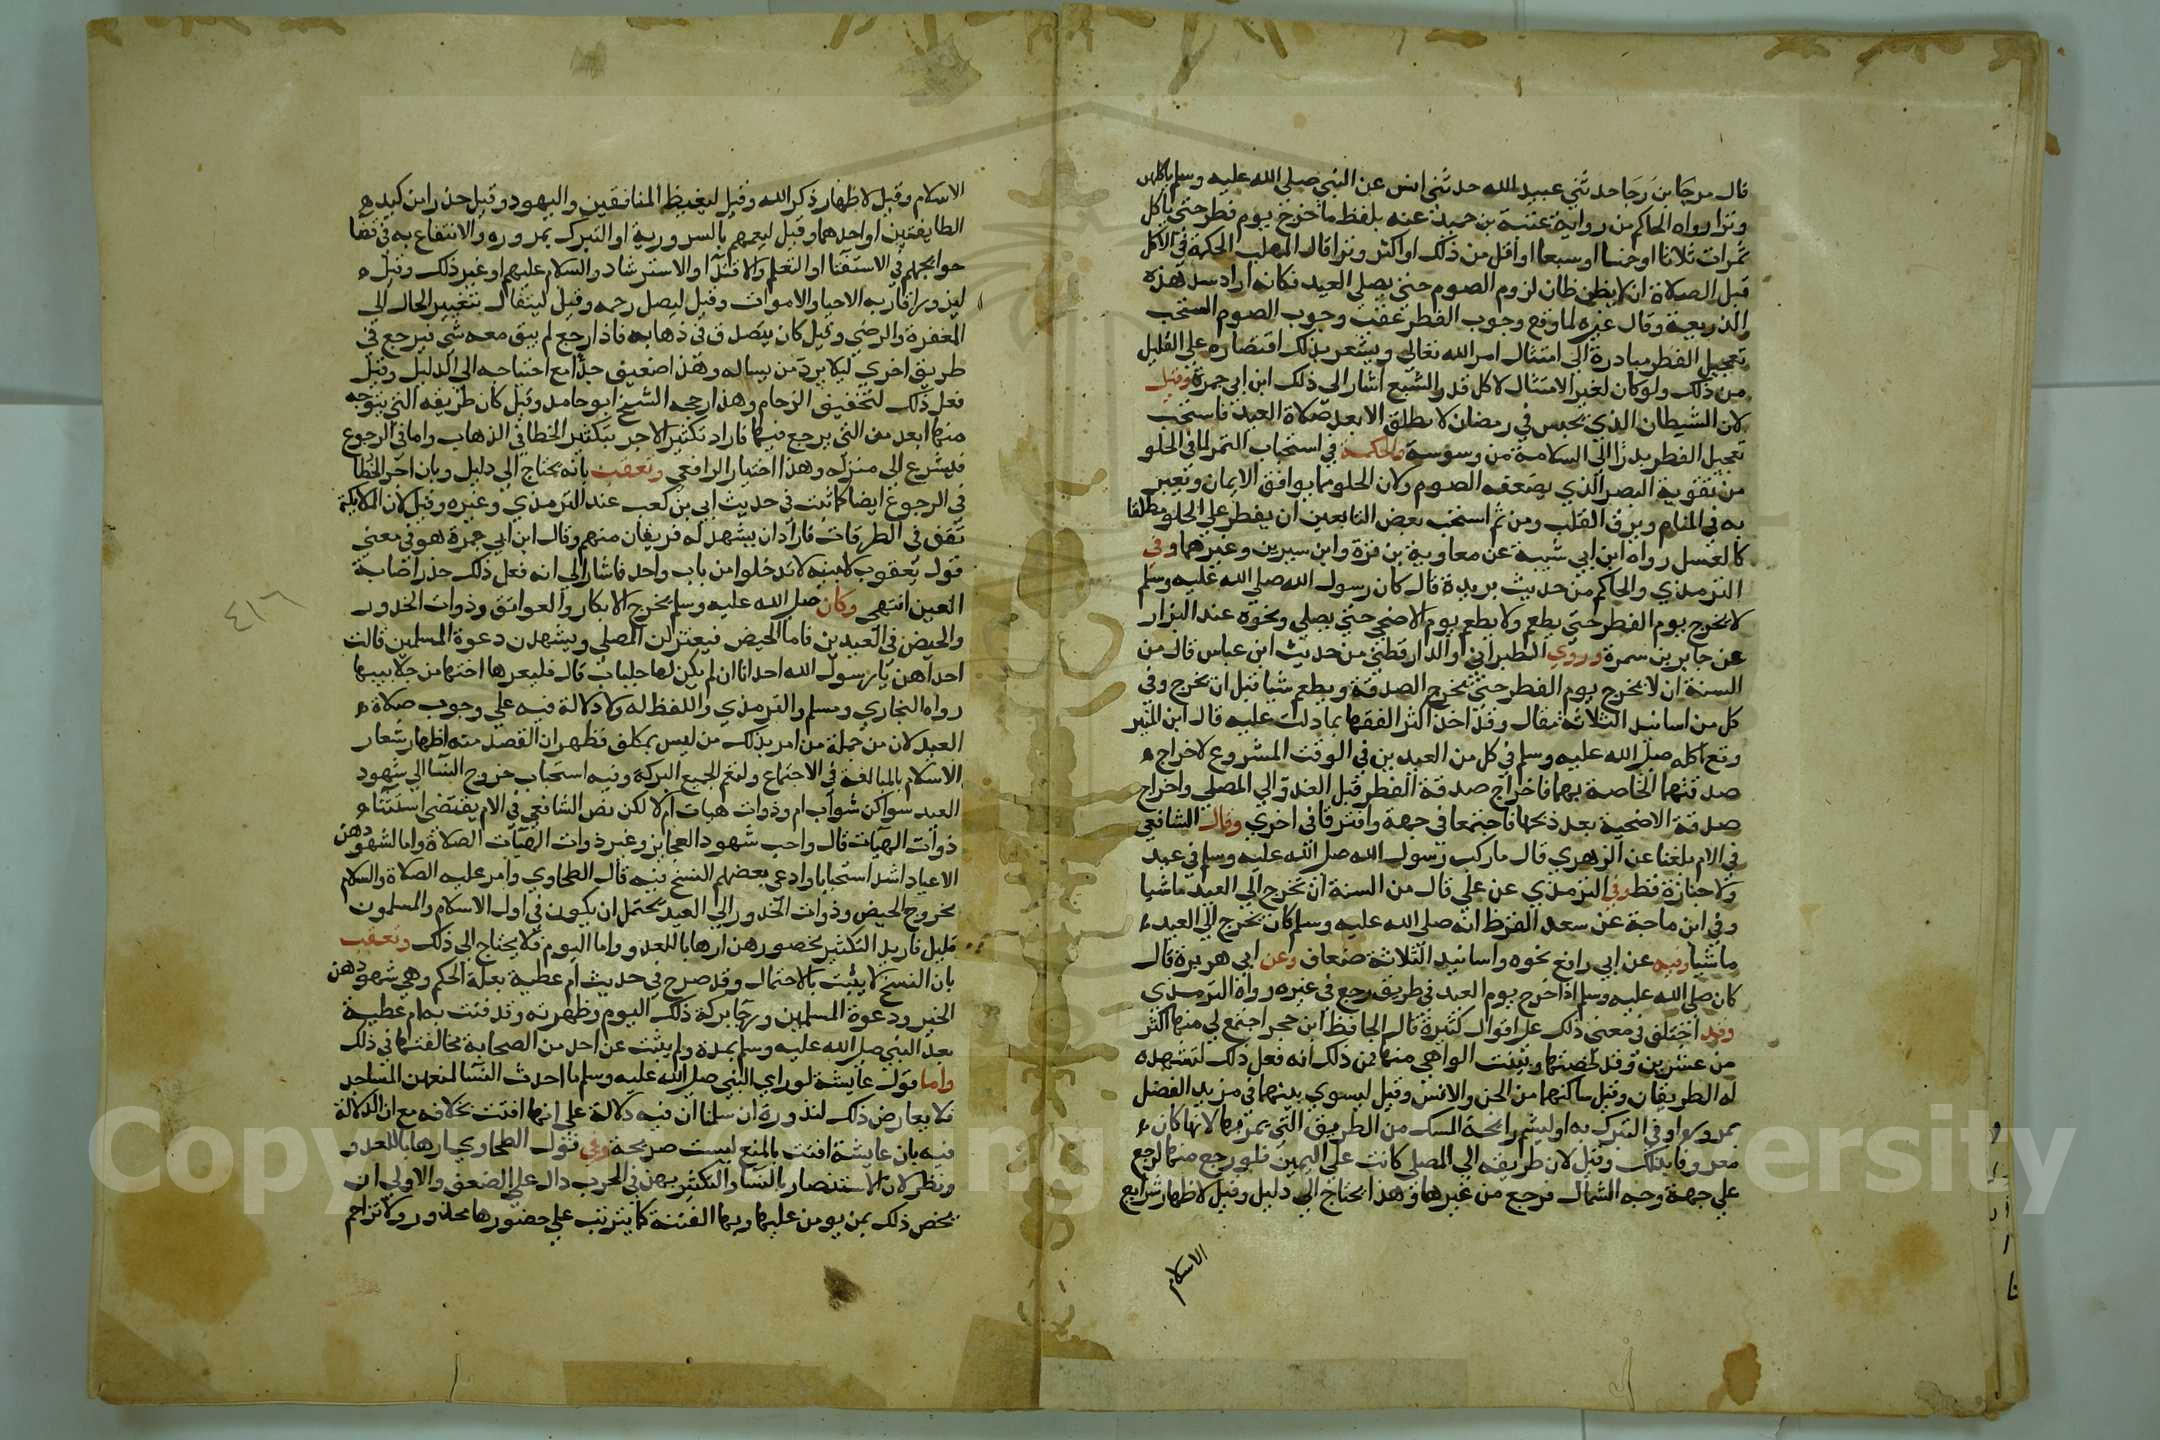 قال مرجا بن رجا حدثني عبيد الله حدثني انس عن النبي صلى الله عليه وسلم ياكلهن
وترا ورواه الحاكم من رواية عتبة بن حميد عنه بلفظ ما خرج يوم فطر حتى ياكل
تمرات ثلاثا او خمسا او سبعا او اقل من ذلك او اكثر وترا قال المهلب الحكمة في الاكل
قبل الصلاة ان لا يظن ظان لزوم الصوم حتى يصلي العيد فكانه اراد سد هذه
الذريعة وقال غيره لما وقع وجوب الفطر عقب وجوب الصوم استحب
تعجيل الفطر مبادرة الى امتثال امر الله تعالى ويشعر بذلك اقتصاره على القليل
من ذلك ولو كان لغير الامتثال لاكل قدر الشبع اشار الى ذلك ابن ابي جمرة وقيل
لان الشيطان الذي يحبس في رمضان لا يطلق الا بعد صلاة العيد فاستحب
تعجيل الفطر بدرا الى السلامة من وسوسته والحكمة في استحباب التمر لما في الحلو
من تقوية البصر الذي يضعفه الصوم ولان الحلو مما يوافق الايمان ويعبر
به في المنام ويرق القلب ومن ثم استحب بعض التابعين ان يفطر على الحلو مطلقا
كالعسل رواه ابن ابي شيبة عن معاوية بن قرة وابن سيرين وغيرهما وفي
الترمذي والحاكم من حديث بريدة قال كان رسول الله صلى الله عليه وسلم
لا يخرج يوم الفطر حتى يطعم ولا يطعم يوم الاضحى حتى يصلي ونحوه عند البزار
عن جابر بن سمرة وروى الطبراني والدارقطني من حديث ابن عباس قال من
السنة ان لا يخرج يوم الفطر حتى يخرج الصدقة ويطعم شيا قبل ان يخرج وفي
كل من اسانيد الثلاثة مقال وقد اخذ اكثر الفقها بما دلت عليه قال ابن المنير
وقع اكله صلى الله عليه وسلم في كل من العيدين في الوقت المشروع لاخراج
صدقتهما الخاصة بهما فاخراج صدقة الفطر قبل الغدو الى المصلى واخراج
صدقة الاضحية بعد ذبحها فاجتمعا في جهة وافترقا في اخرى وقال الشافعي
في الام بلغنا عن الزهري قال ما ركب رسول الله صلى الله عليه وسلم في عيد
ولا جنازة قط وفي الترمذي عن علي قال من السنة ان تخرج الى العيد ماشيا
وفي ابن ماجة عن سعد القرظ انه صلى الله عليه وسلم كان يخرج الى العيد
ماشيا وفيه عن ابي رافع نحوه واسانيد الثلاثة ضعاف وعن ابي هريرة قال
كان صلى الله عليه وسلم اذا خرج يوم العيد في طريق رجع في غيره رواه الترمذي
وقد اختلف في معنى ذلك على اقوال كثيرة قال الحافظ ابن حجر اجتمع لي منها اكثر
من عشرين وقد لخصتها وبينت الواهي منها فمن ذلك انه فعل ذلك لتشهد
له الطريقان وقيل ساكنهما من الجن والانس وقيل ليسوي بينهما في مزيد الفضل
بمروره او في التبرك به او ليشم رايحة المسك من الطريق التي يمر فيها لانها كان
معروفا بذلك وقيل لان طريقه الى المصلى كانت على اليمين فلو رجع منها لرجع
على جهة وجه الشمال فرجع من غيرها وهذا يحتاج الى دليل وقيل لاظهار شرايع
الاسلام
الاسلام وقيل لاظهار ذكر الله وقيل ليغيظ المنافقين واليهود وقيل حذرا من كيد
الطايفتين او احداهما وقيل ليعمهم بالسرور به او التبرك بمروره والانتفاع به في قضا
حوايجهم في الاستفتا او التعلم والاقتدا او الاسترشاد والسلام عليهم او غير ذلك وقيل
ليزور اقاربه الاحيا والاموات وقيل ليصل رحمه وقيل ليتفال بتغيير الحال الى
المغفرة والرضى وقيل كان يتصدق في ذهابه فاذا رجع لم يبق معه شي فيرجع في
طريق اخرى ليلا يرد من يساله وهذا ضعيف جدا مع احتياجه الى الدليل وقيل
فعل ذلك لتخفيف الزحام وهذا رجحه الشيخ ابو حامد وقيل كان طريقه التي يتوجه
منها ابعد من التي يرجع فيها فاراد تكثير الاجر بتكثير الخطا في الذهاب واما في الرجوع
فليسرع الى منزله وهذا اختيار الرافعي وتعقب بانه يحتاج الى دليل وبان اجر الخطا
في الرجوع ايضا كما ثبت في حديث ابي بن كعب عند الترمذي وغيره وقيل لان الملايكة
تقف في الطرقات فاراد ان يشهد له فريقان منهم وقال ابن ابي جمرة هو في معنى
قول يعقوب لابنيه لا تدخلوا من باب واحد فاشار الى انه فعل ذلك حذر اصابة
العين انتهى وكان صلى الله عليه وسلم يخرج الابكار والعواتق وذوات الخدور
والحيض في العيدين فاما الحيض فيعتزلن المصلى ويشهدن دعوة المسلمين قالت
احداهن يا رسول الله احدانا ان لم يكن لها جلباب قال فليعرها اختها من جلابيبها
رواه البخاري ومسلم والترمذي واللفظ له ولا دلالة فيه على وجوب صلاة
العيد لان من جملة من امر بذلك من ليس بمكلف فظهر ان القصد منه اظهار شعار
الاسلام بالمبالغة في الاجتماع ولتعم الجميع البركة وفيه استحباب خروج النسا الى شهود
العيد سواكن شواب ام وذوات هيات ام لا لكن نص الشافعي في الام يقتضي استثناء
ذوات الهيات قال واحب شهود العجايز وغير ذوات الهيات الصلاة وانا لشهودهن
الاعياد اشد استحبابا وادعى بعضهم النسخ فيه قال الطحاوي وامر عليه الصلاة والسلام
بخروج الحيض وذوات الخدور الى العيد يحتمل ان يكون في اول الاسلام والمسلمون
قليل فاريد التكثير بحضورهن ارهابا للعدو واما اليوم فلا يحتاج الى ذلك وتعقب
بان النسخ لا يثبت بالاحتمال وقد صرح في حديث ام عطية بعلة الحكم وهي شهودهن
الخير ودعوة المسلمين ورجا بركة ذلك اليوم وطهرته وقد افتت به ام عطية
بعد النبي صلى الله عليه وسلم بمدة ولم يثبت عن احد من الصحابة مخالفتها في ذلك
واما قول عايشة لو راى النبي صلى الله عليه وسلم ما احدث النسا لمنعهن المساجد
فلا يعارض ذلك لندوره ان سلمنا ان فيه دلالة على انها افتت بخلافه مع ان الدلالة
فيه بان عايشة افتت بالمنع ليست صريحة وفي قول الطحاوي ارهابا للعدو
ونظر لان الاستنصار بالنسا والتكثر بهن في الحرب دال على الضعف والاولى ان
يخص ذلك بمن يومن عليها وبها الفتنة فلا يترتب على حضورها محذور ولا تزاحم
٤١٦
Copyright King University